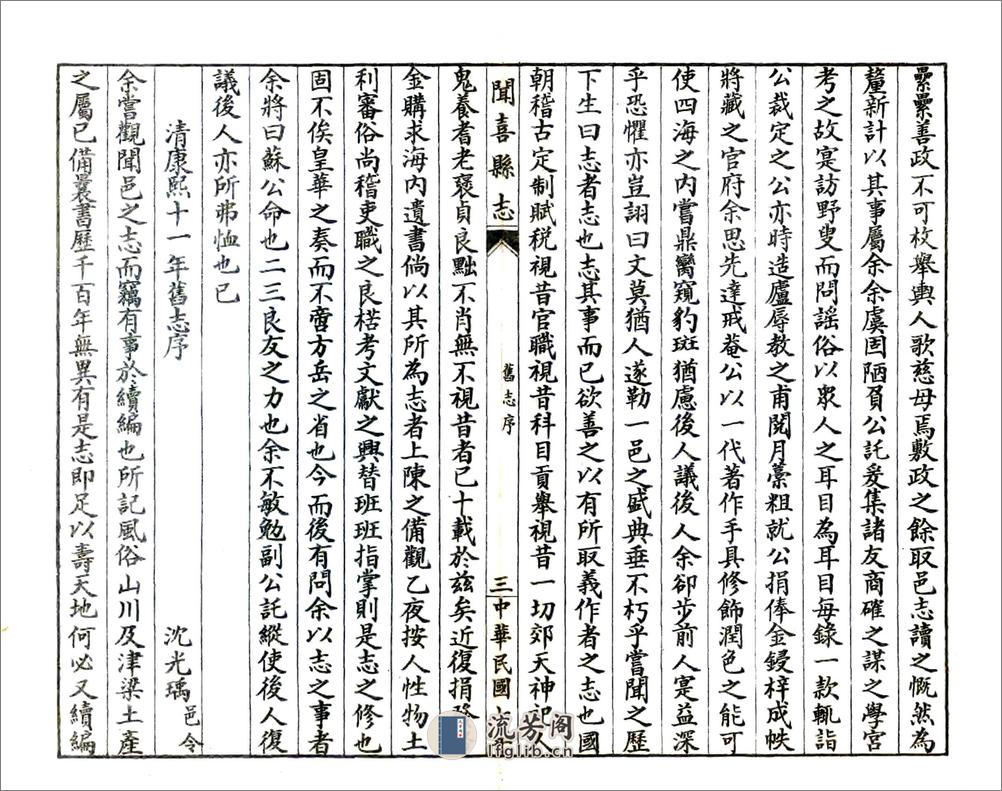 纍纍善政不可枚舉輿人歌慈母焉敷政之餘取邑志讀之慨然為
釐新計以其事屬余余虞固陋負公託爰集諸友商確之謀之學宮
考之故寔訪野叟而問謠俗以眾人之耳目為耳目每錄一款輒詣
公裁定之公亦時造廬辱教之甫閱月藁粗就公捐俸金鋟梓成帙
將藏之官府余思先達戒菴公以一代著作手具修飾潤色之能可
使四海之內嘗鼎臠窺豹斑猶慮後人議後人余卻步前人寔益深
乎恐懼亦豈詡曰文莫猶人遂勒一邑之盛典垂不朽乎嘗聞之歷
下生曰志者志也志其事而已欲善之以有所取義作者之志也國
朝稽古定制賦稅視昔官職視昔科目貢舉視昔一切郊天神祀人
聞喜縣志
舊志序
三
中華民國
鬼養耆老褒貞良黜不肖無不視昔者已十載於茲矣近復捐
金購求海內遺書倘以其所為志者上陳之備觀乙夜按人性物土
利審俗尚稽吏職之良楛考文獻之興替班班指掌則是志之修也
固不俟皇華之奏而不啻方岳之省也今而後有問余以志之事者
余將曰蘇公命也二三良友之力也余不敏勉副公託縱使後人復
議後人亦所弗恤也已
清康熙十一年舊志序
沈光瑀邑令
余嘗觀聞邑之志而竊有事於續編也所記風俗山川及津梁土產
之屬已備曩書歷千百年無異有是志即足以壽天地何必又續編
流芳阁
lfglib.cn